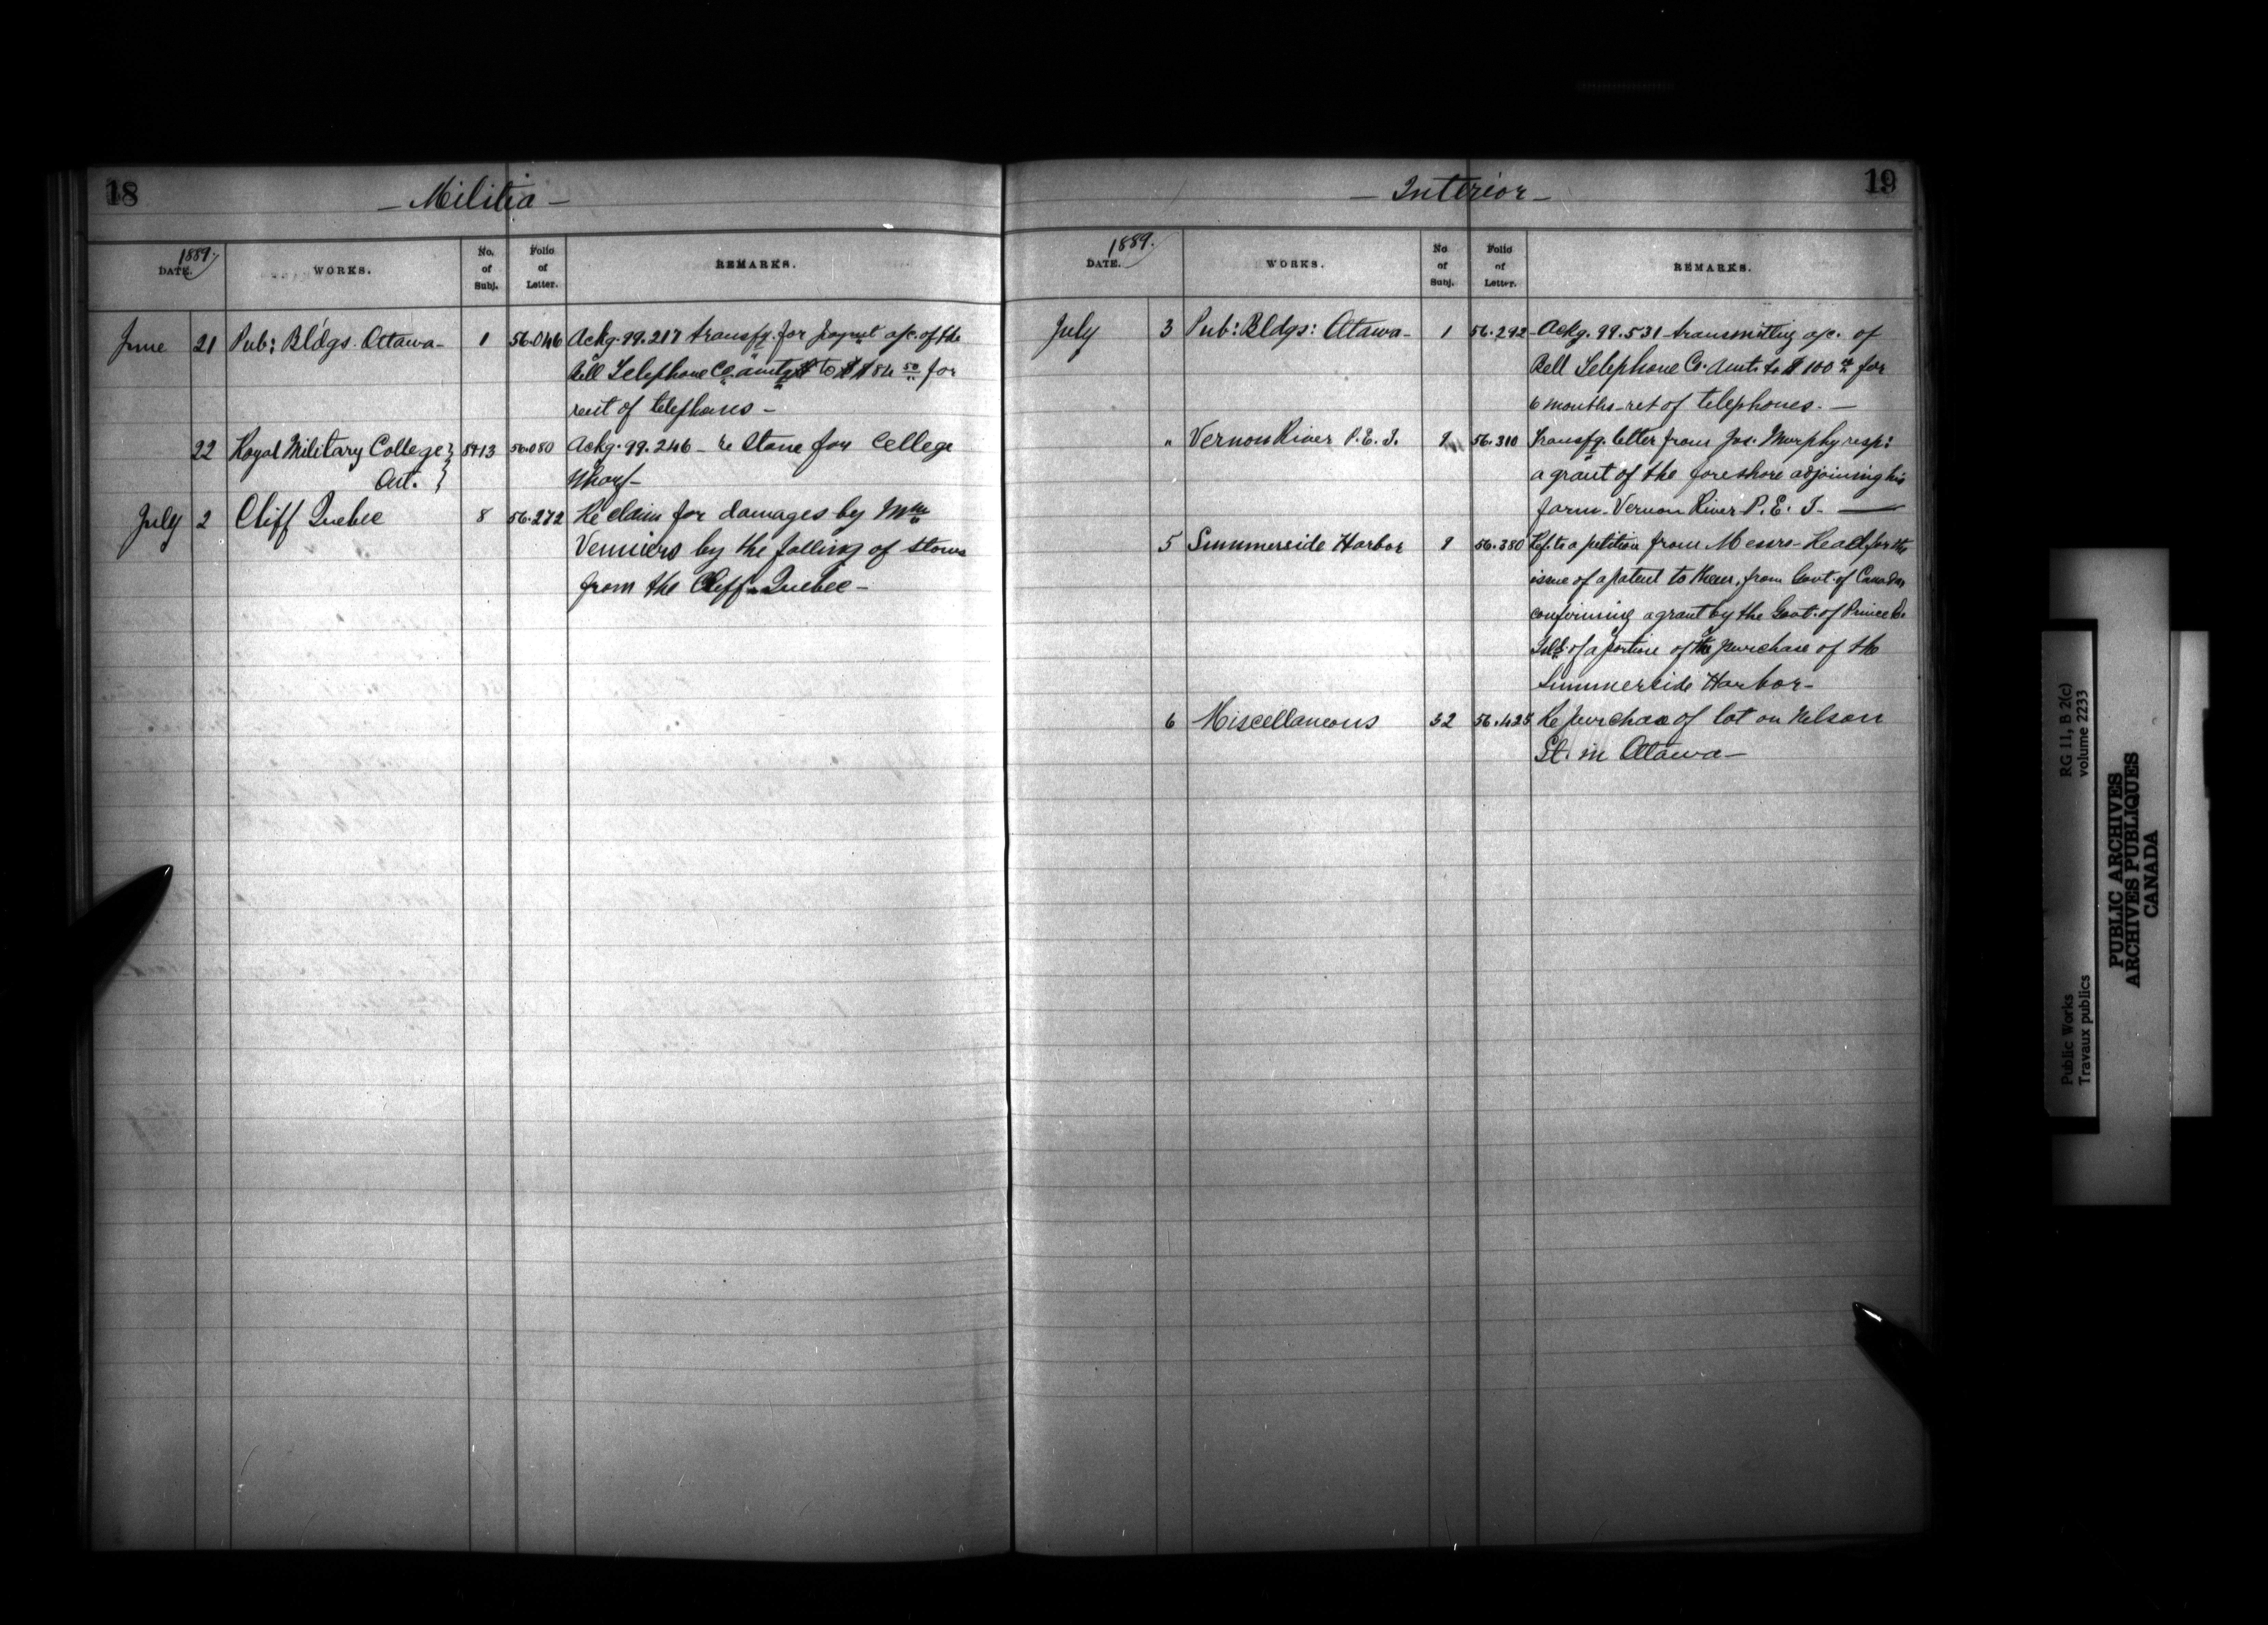 18
— Militia —
1889.
DATE.
WORKS.
No. of Subj.
Folio of Letter.
REMARKS.
June 21 Pub: Bldgs. Ottawa- 1 56.046 Ackg. 99.217 transfg. for paymt a/c. of the
Bell Telephone Co. amtg to $84.50 for
rent of telephones —
22 Royal Military College } 8413 56.080 Ackg. 99.246 — re Stone for College
Ont. } Wharf —
July 2 Cliff Quebec 8 56.272 Re claim for damages by Mme
Venniers by the falling of stones
from the Cliff Quebec —
19
— Interior —
1889.
DATE.
WORKS.
No of Subj.
Folio of Letter.
REMARKS.
July 3 Pub: Bldgs: Ottawa- 1 56.292 Ackg. 99.531 transmitting a/c. of
Bell Telephone Co. amtg to $100 for
6 months - ret of telephones. —
" Vernon River P.E.I. 9 56.310 Transfg. letter from Jas. Murphy resp:
a grant of the foreshore adjoining his
farm - Vernon River P.E.I. —
5 Summerside Harbor 9 56.380 Ref. to a petition from Messrs- Head for the
issue of a patent to them, from Govt. of Canada
confirming a grant by the Govt. of Prince Ed.
Isld. of a portion of the purchase of the
Summerside Harbor-
6 Miscellaneous 32 56.425 Re purchase of lot on Nelson
St. in Ottawa —
RG 11, B 2(c)
volume 2233
Public Works
Travaux publics
PUBLIC ARCHIVES
ARCHIVES PUBLIQUES
CANADA